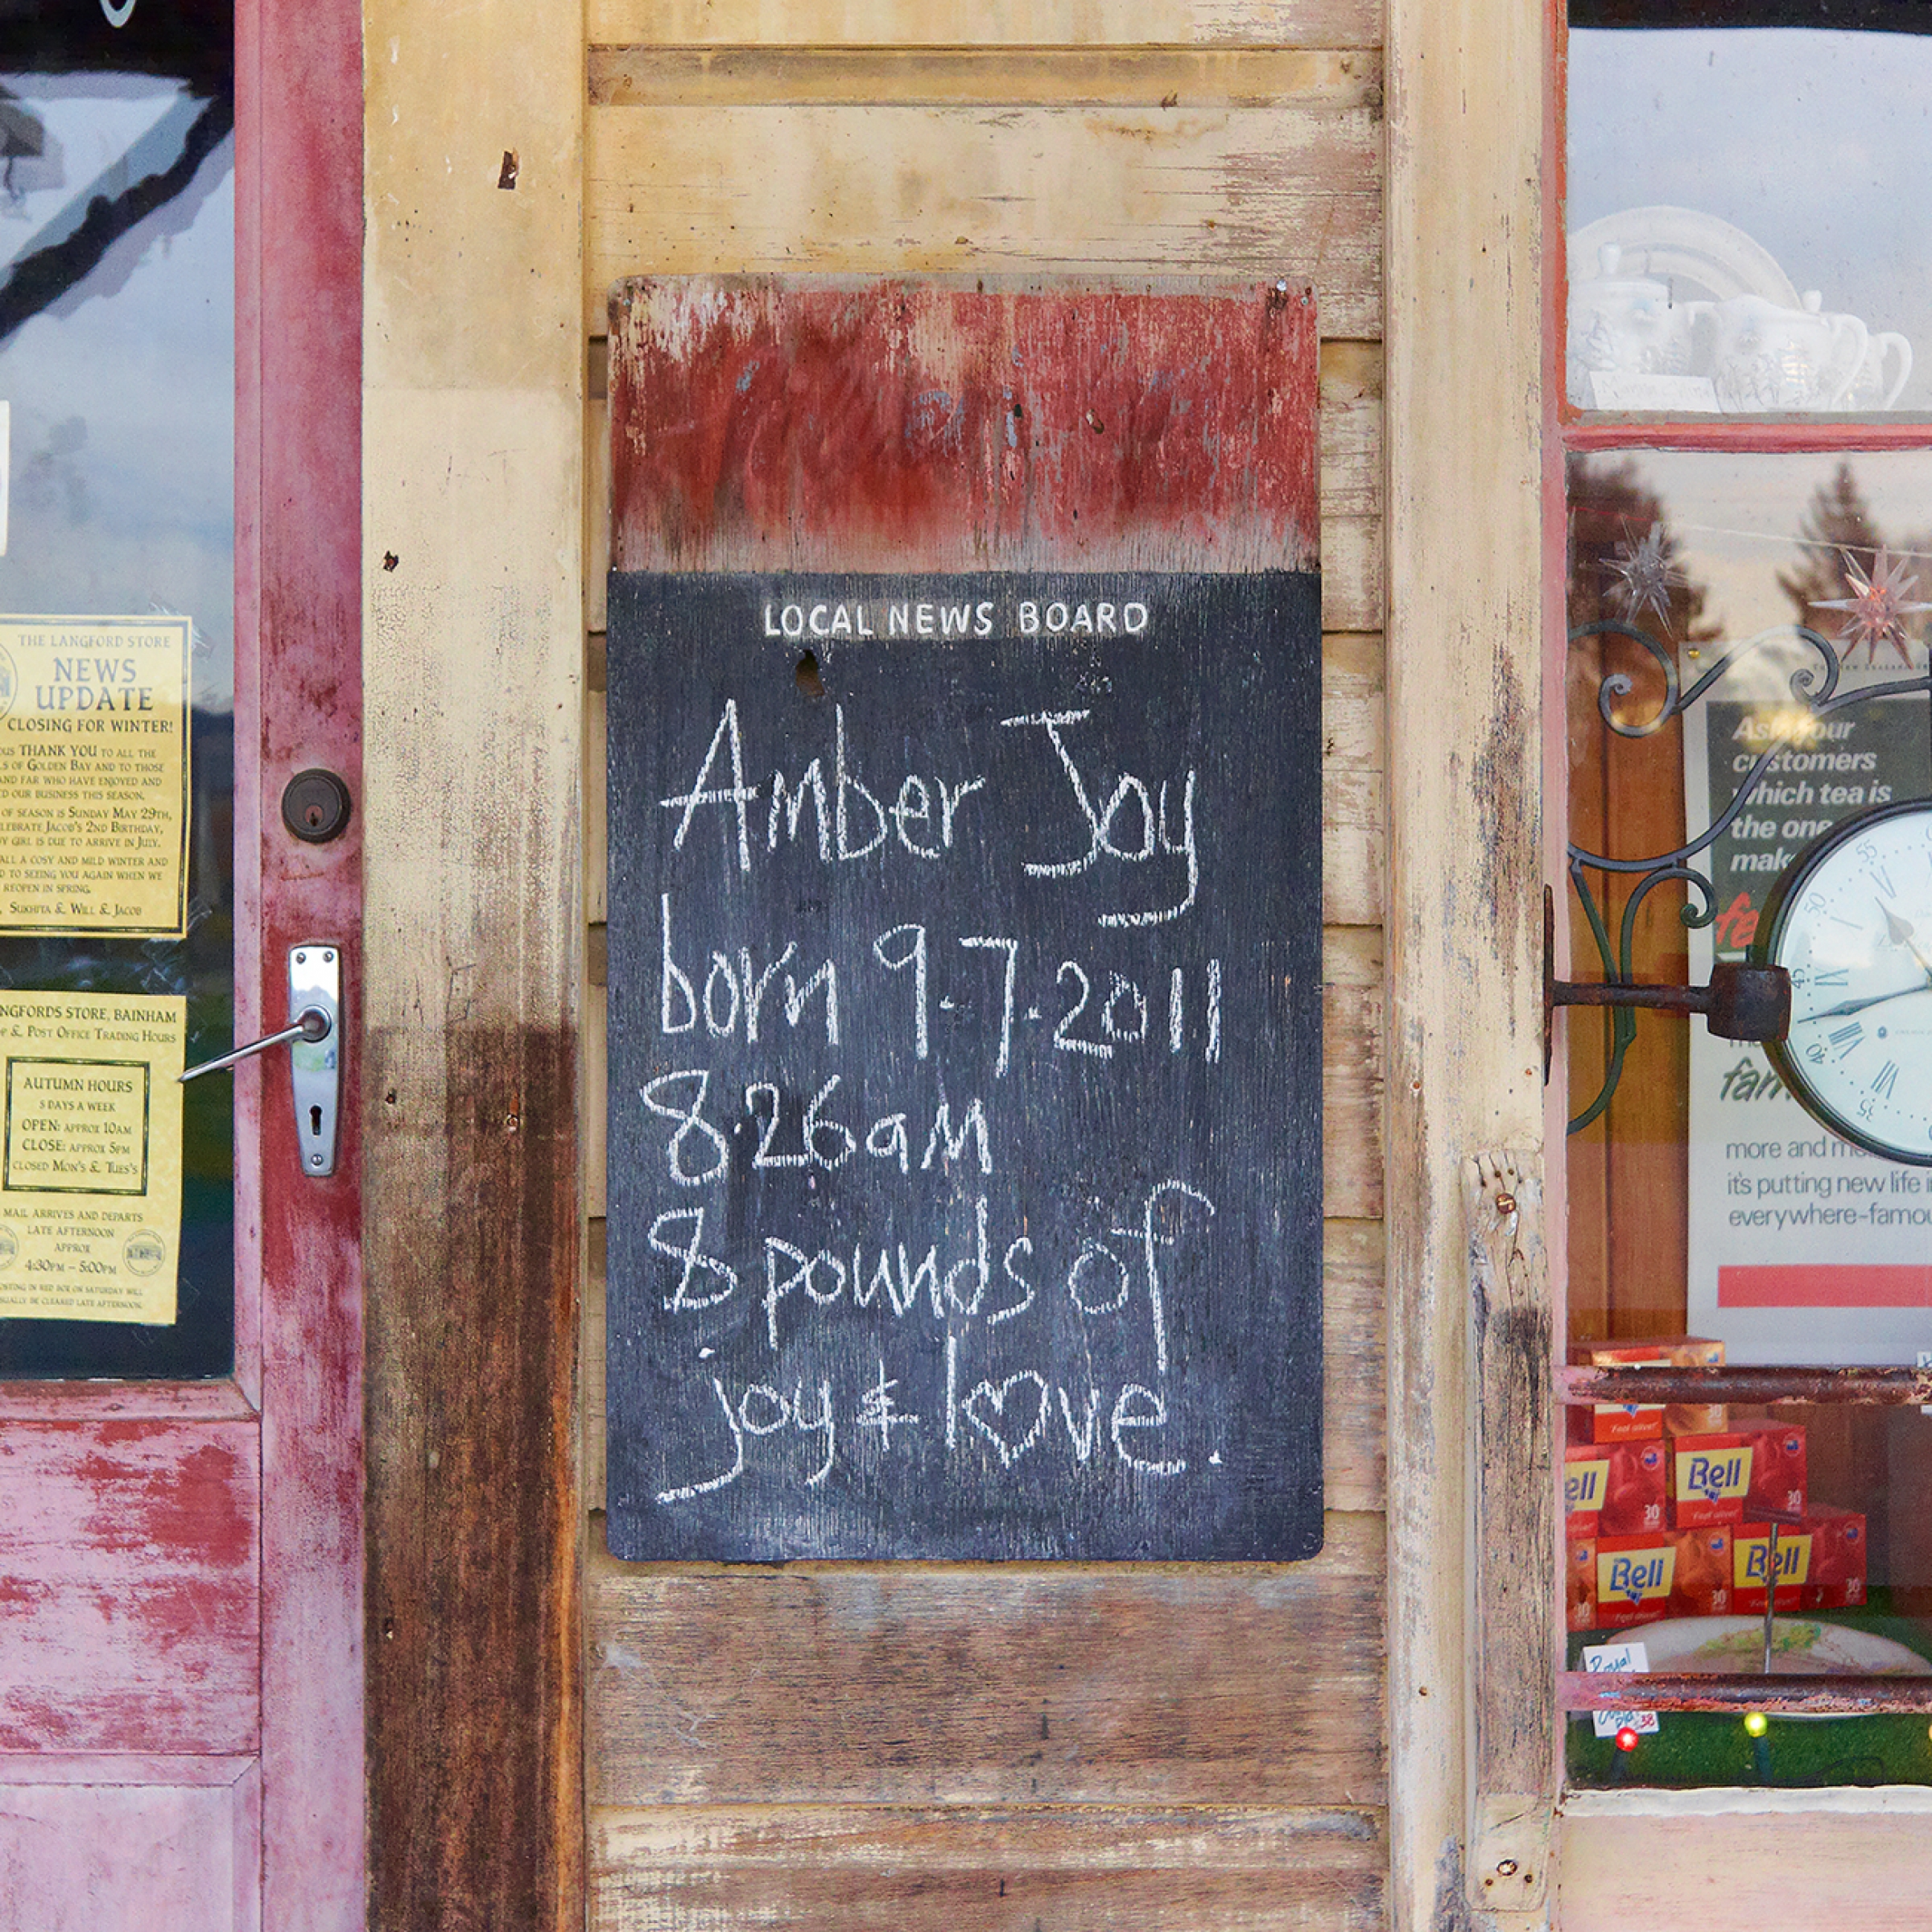 THE LANGFORD STORE
NEWS
UPDATE
CLOSING FOR WINTER!
THANK YOU TO ALL THE
OF GOLDEN BAY AND TO THOSE
AND FAR WHO HAVE ENJOYED AND
OUR BUSINESS THIS SEASON.
OF SEASON IS SUNDAY MAY 29TH,
JACOB'S 2ND BIRTHDAY,
GIRL IS DUE TO ARRIVE IN JULY.
ALL A COSY AND MILD WINTER AND
TO SEEING YOU AGAIN WHEN WE
REOPEN IN SPRING.
SUKHITA & WILL & JACOB
NGFORDS STORE, BAINHAM
& POST OFFICE TRADING HOURS
AUTUMN HOURS
5 DAYS A WEEK
OPEN: APPROX 10AM
CLOSE: APPROX 5PM
CLOSED MON'S & TUES'S
MAIL ARRIVES AND DEPARTS
LATE AFTERNOON
APPROX
4:30PM – 5:00PM
IN RED BOX ON SATURDAY WILL
BE CLEARED LATE AFTERNOON.
LOCAL NEWS BOARD
Amber Joy
born 9.7.2011
8.26am
8 pounds of
joy & love.
Ask your
customers
which tea is
the one
mak
fa
fam
more and m
it's putting new life i
everywhere-famou
55
50
45
40
35
Feel alive!
ell
30
Bell
30
'Feel alive!'
30
Bell
30
'Feel alive!'
Bell
30
'Feel alive!'
Royal